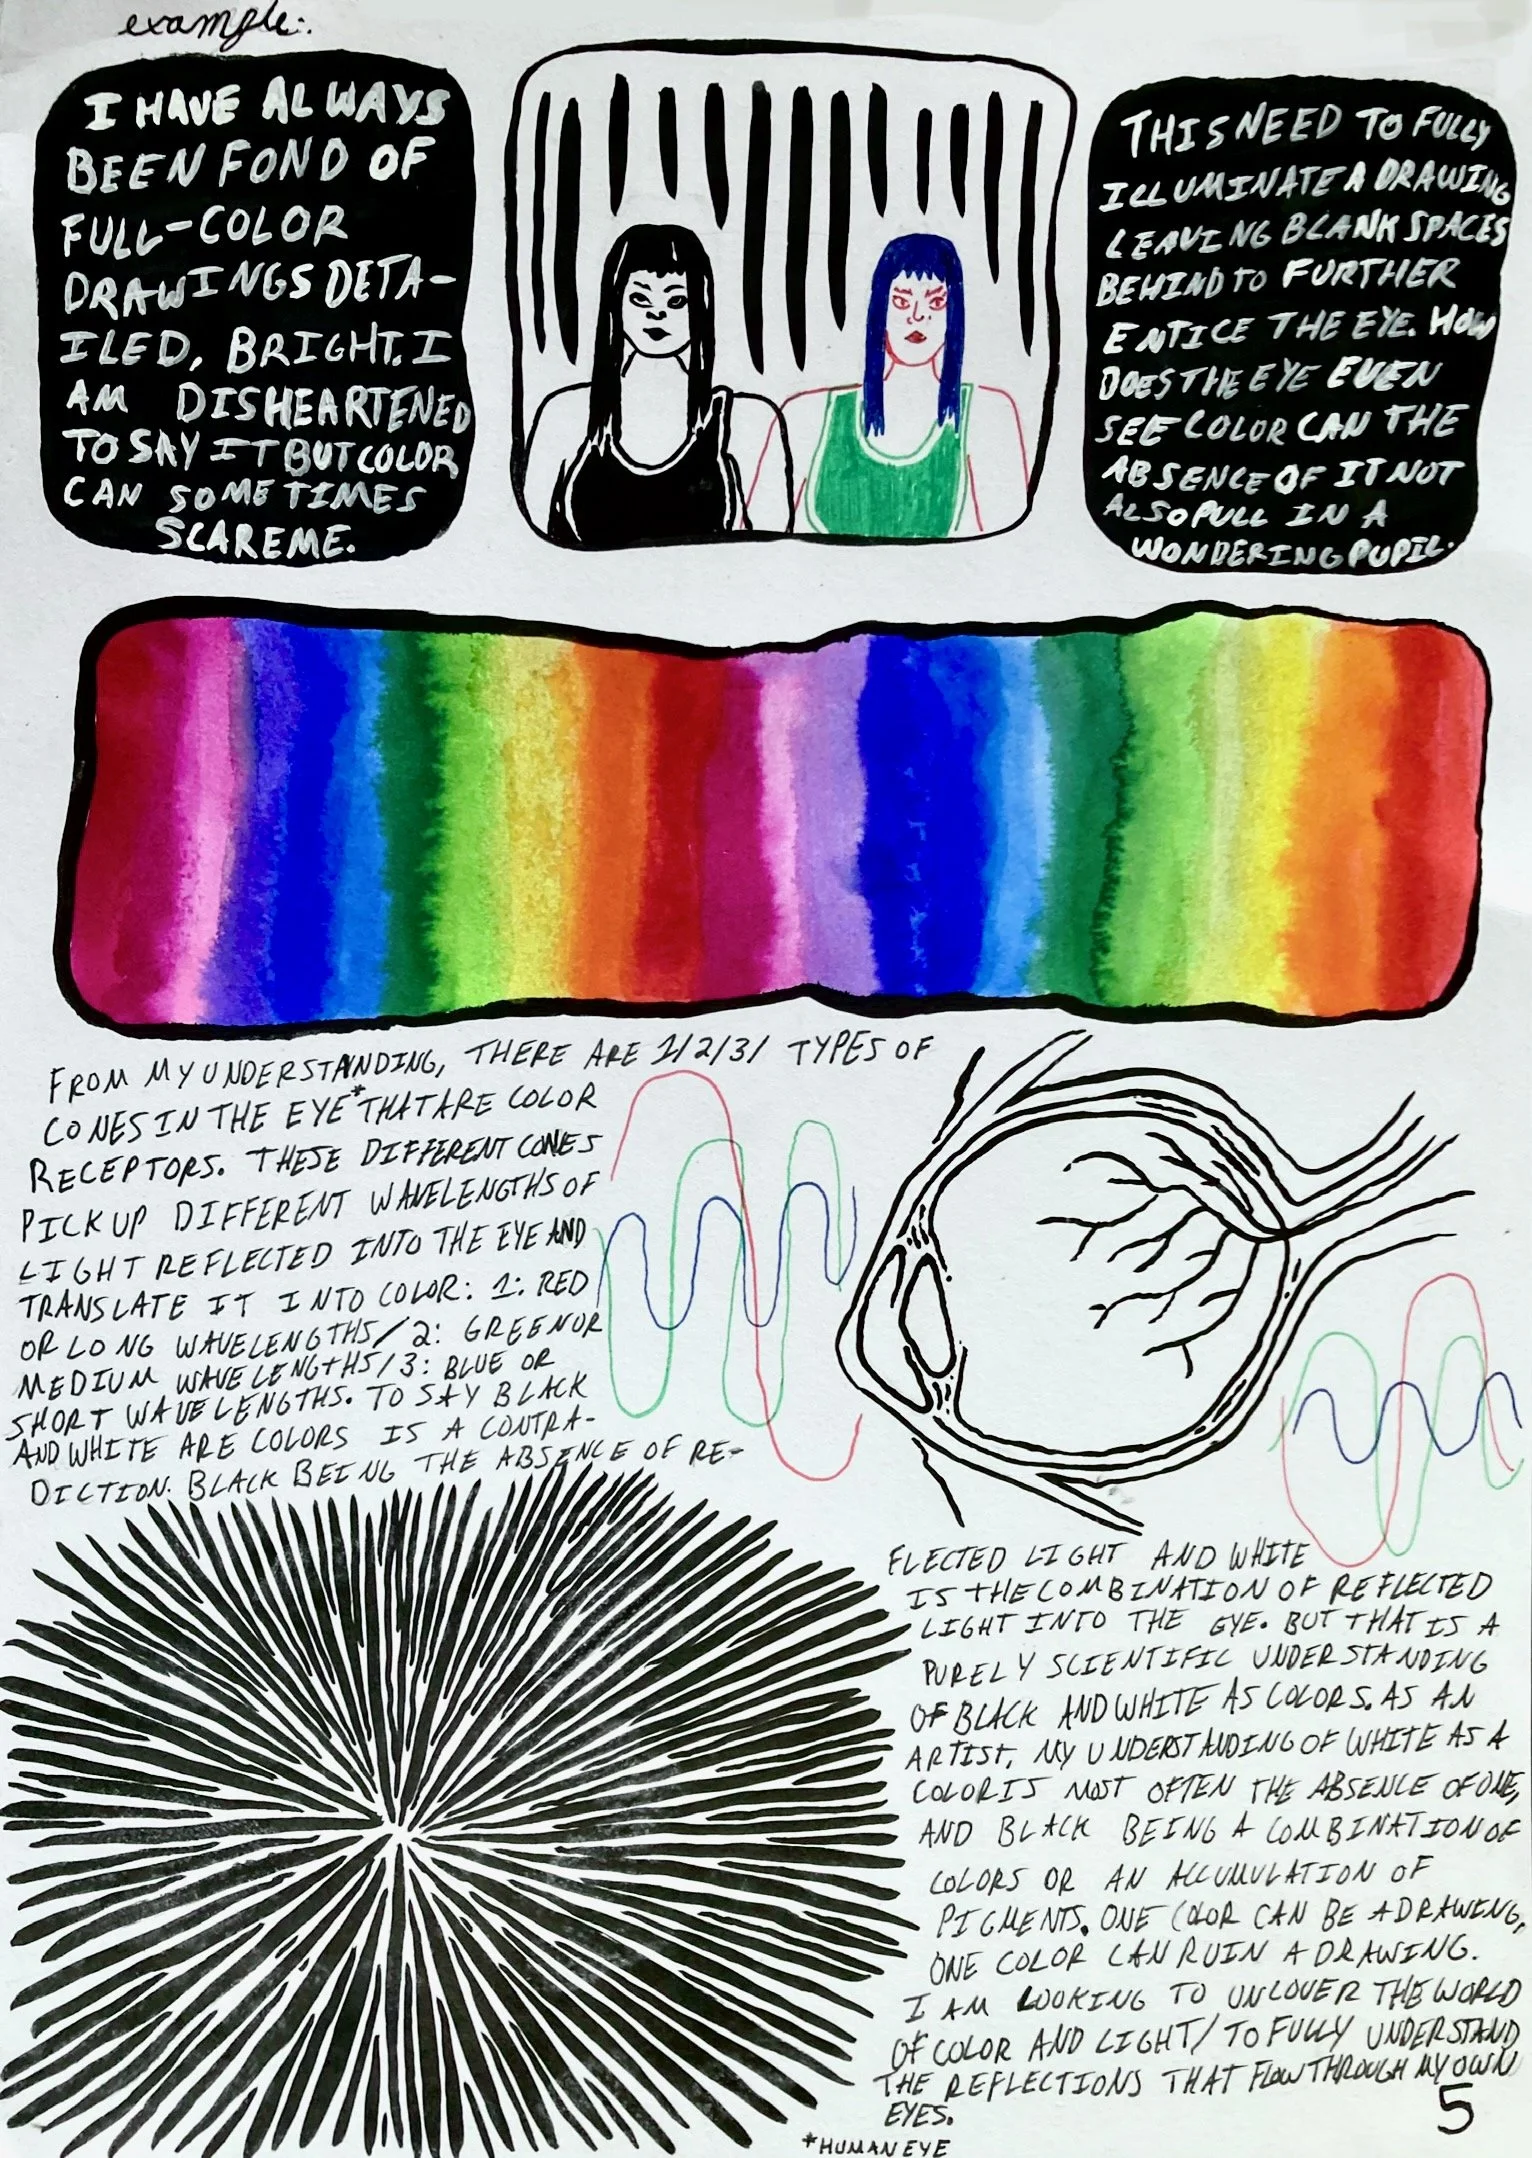 example:.
I HAVE ALWAYS
BEEN FOND OF
FULL-COLOR
DRAWINGS DETA-
ILED, BRIGHT. I
AM DISHEARTENED
TO SAY IT BUT COLOR
CAN SOMETIMES
SCARE ME.
THIS NEED TO FULLY
ILLUMINATE A DRAWING
LEAVING BLANK SPACES
BEHIND TO FURTHER
ENTICE THE EYE. HOW
DOES THE EYE EVEN
SEE COLOR CAN THE
ABSENCE OF IT NOT
ALSO PULL IN A
WONDERING PUPIL.
FROM MY UNDERSTANDING, THERE ARE 1/2/3/ TYPES OF
CONES IN THE EYE* THAT ARE COLOR
RECEPTORS. THESE DIFFERENT CONES
PICK UP DIFFERENT WAVELENGTHS OF
LIGHT REFLECTED INTO THE EYE AND
TRANSLATE IT INTO COLOR: 1: RED
OR LONG WAVELENGTHS/2: GREEN OR
MEDIUM WAVELENGTHS/3: BLUE OR
SHORT WAVELENGTHS. TO SAY BLACK
AND WHITE ARE COLORS IS A CONTRA-
DICTION. BLACK BEING THE ABSENCE OF RE-
FLECTED LIGHT AND WHITE
IS THE COMBINATION OF REFLECTED
LIGHT INTO THE EYE. BUT THAT IS A
PURELY SCIENTIFIC UNDERSTANDING
OF BLACK AND WHITE AS COLORS. AS AN
ARTIST, MY UNDERSTANDING OF WHITE AS A
COLOR IS MOST OFTEN THE ABSENCE OF ONE,
AND BLACK BEING A COMBINATION OF
COLORS OR AN ACCUMULATION OF
PIGMENTS. ONE COLOR CAN BE A DRAWING,
ONE COLOR CAN RUIN A DRAWING.
I AM LOOKING TO UNCOVER THE WORLD
OF COLOR AND LIGHT/ TO FULLY UNDERSTAND
THE REFLECTIONS THAT FLOW THROUGH MY OWN
EYES.
5
*HUMAN EYE